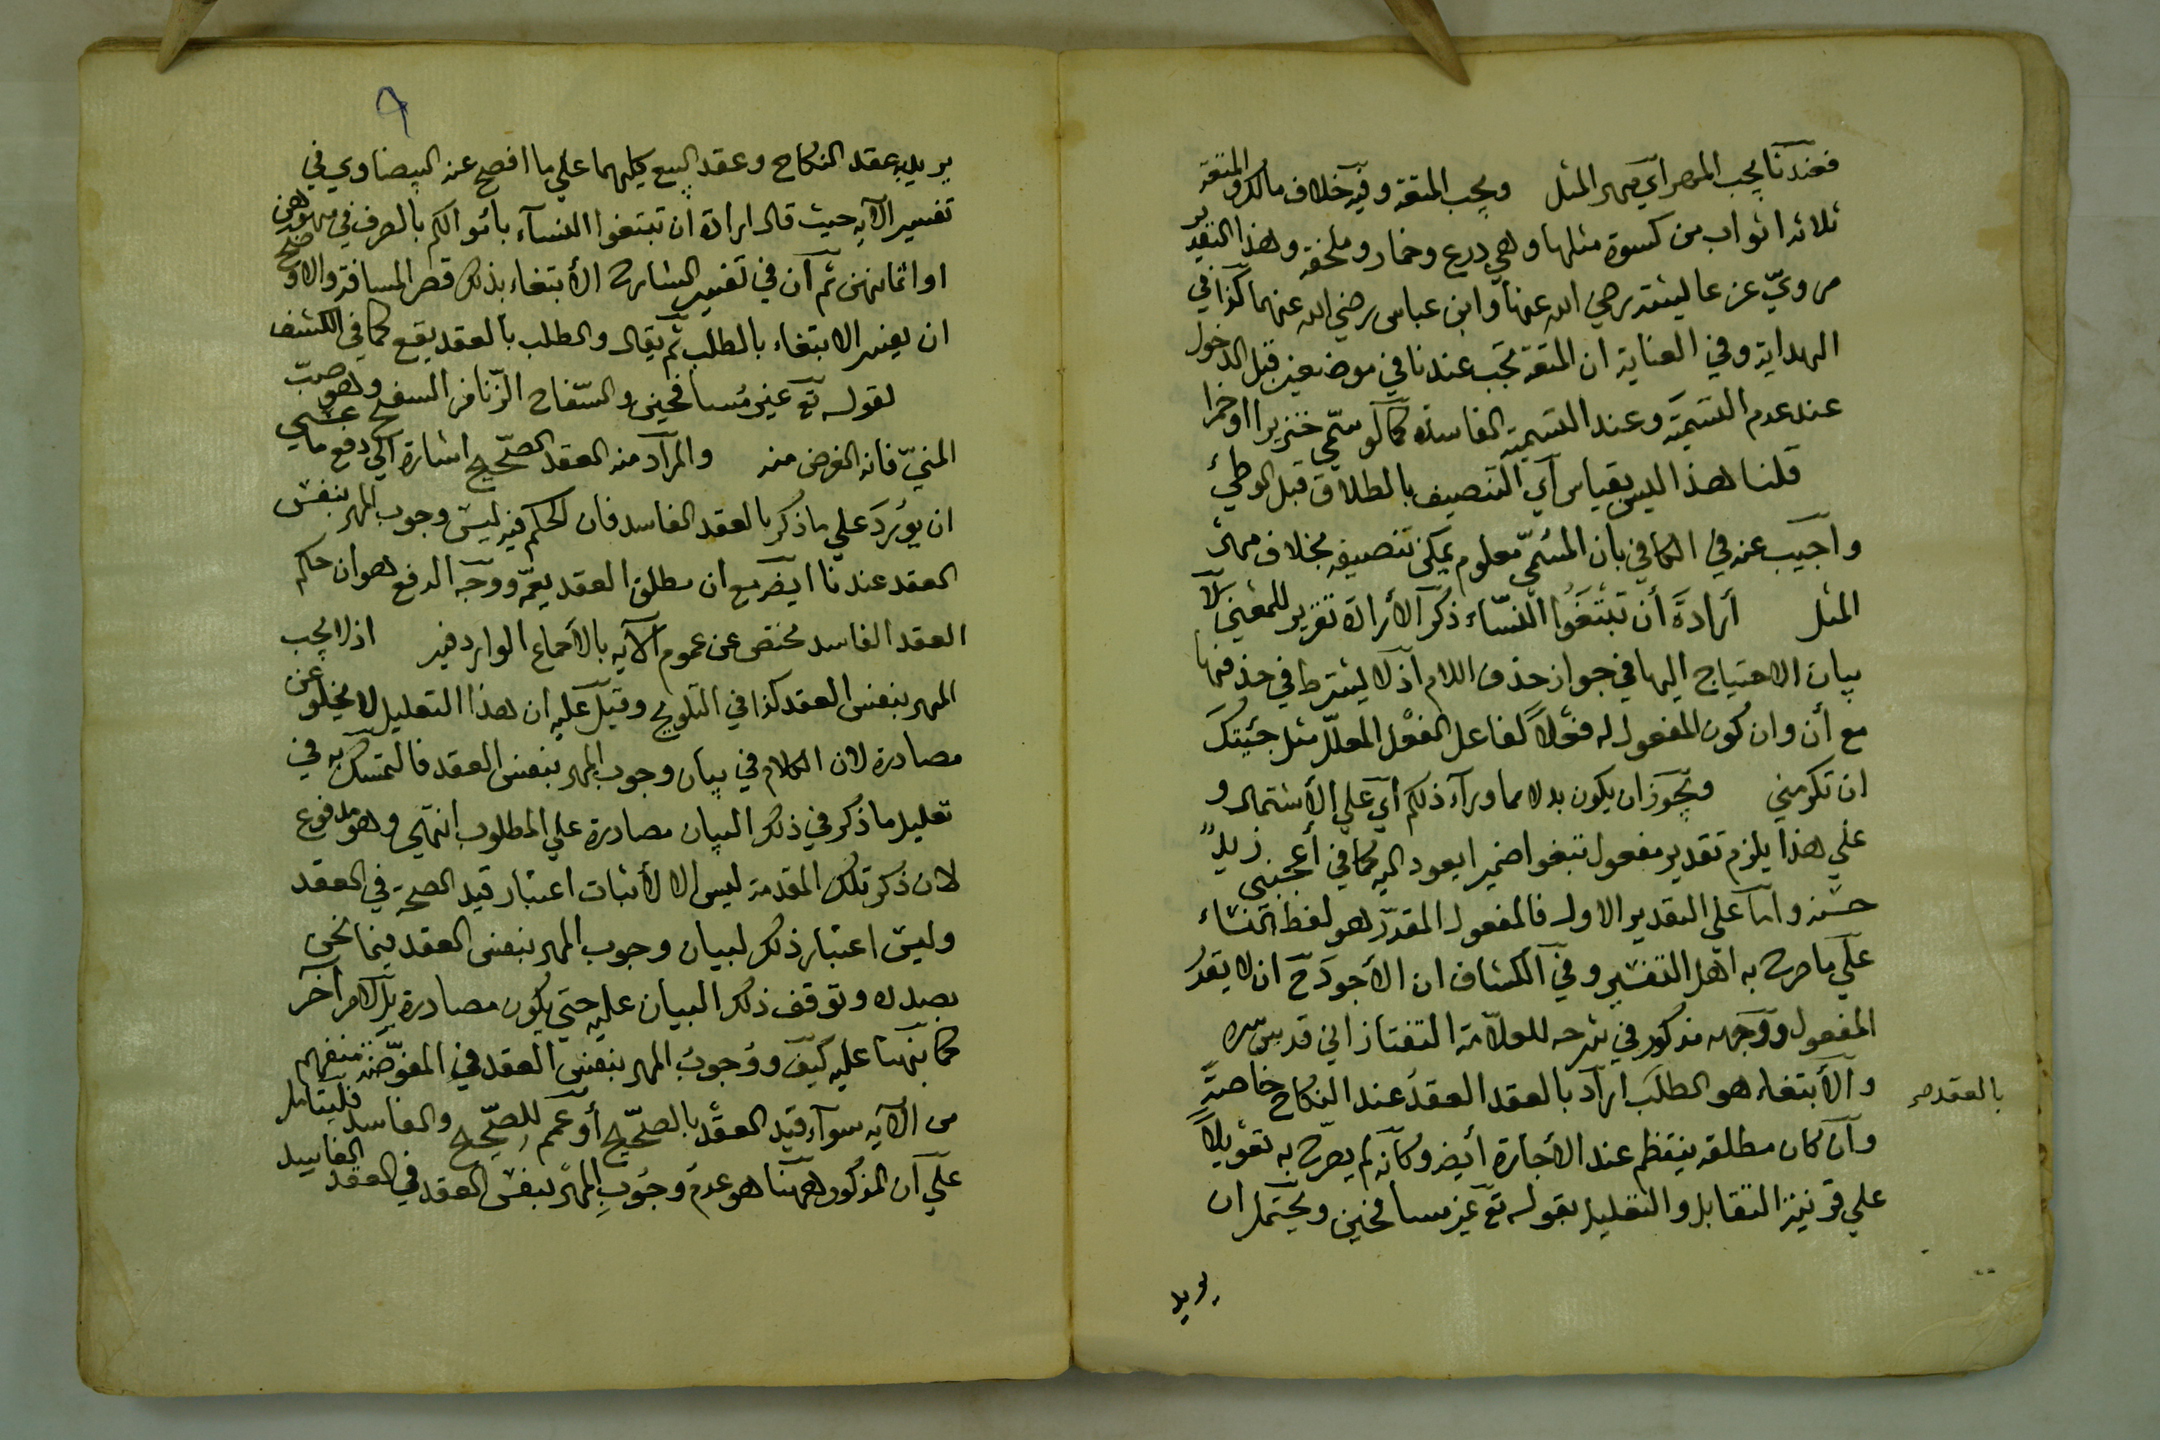 فعندنا يجب المهر اي مهر المثل ويجب المتعة وفيه خلاف مالك والمتعة
ثلاثة اثواب من كسوة مثلها وهي درع وخمار وملحفة وهذا التقدير
مرويّ عن عايشة رضي الله عنها وابن عباس رضي الله عنهما كذا في
الهداية وفي العناية ان المتعة تجب عندنا في موضعين قبل الدخول
عند عدم التسمية وعند التسمية الفاسدة كما لو سمّي خنزيرا او خمرا
قلنا هذا ليس بقياس اي التنصيف بالطلاق قبل الوطئ
واجيب عنه في الكافي بان المسمّي معلوم يمكن تنصيفه بخلاف مهر
المثل ارادة أن تبتغوا النسّاء ذكر الارادة تقرير للمعني لا
بيان الاحتياج اليها في جواز حذف اللام اذ لا يشترط في حذفها
مع أن وان كون المفعول له فعلاً لفاعل الفعل المعلّل مثل جئتك
ان تكرمني ويجوز ان يكون بدلا مما ورآء ذلكم اي علي الاشتمال و
علي هذا يلزم تقدير مفعول تبتغوا ضميرا يعود اليه كما في أعجبني زيدٌ
حسنه واما علي التقدير الاول فالمفعول المقدّر هو لفظ النساء
علي ما صرح به اهل التفسير وفي الكشاف ان الاجود ح ان لا يقدر
المفعول ووجهه مذكور في شرحه للعلامة التفتازاني قدس سره
والابتغاء هو الطلب اراد بالعقد العقد عند النكاح خاصة
بالعقد صح
وان كان مطلقه ينتظم عند الاجارة أيضر وكأنه لم يصرح به تعويلاً
علي قرنية التقابل والتقليد بقوله تع غير مسافحين ويحتمل ان
يريد
٩
يريد به عقد النكاح وعقد البيع كليهما علي ما افصح عنه البيضاوي في
تفسير الآيه حيث قال ارادة ان تبتغوا النسآء باموالكم بالصرف في مهورهن
او اثمانهن ثم ان في تفسير الشارح الابتغاء بذلك قصر المسافة والاوضح
ان يفسر الابتغاء بالطلب ثم يقال والطلب بالعقد يقع كما في الكشف
لقوله تع غير مُسافحين والسّفاح الزّنا من السفح وهو صبّ
المنيّ فانه الغرض منه والمراد منه العقد الصّحيح اشارة الي دفع ما عسي
ان يوُردَ علي ما ذكر بالعقد الفاسد فان الحكم فيه ليس وجوب المهر بنفس
العقد عندنا ايضر مع ان مطلق العقد يعمّه ووجه الدفع هو ان حكم
العقد الفاسد مختص عن عموم الآيه بالاجماع الوارد فيه اذ لا يجب
المهر بنفس العقد كذا في التلويح وقيل عليه ان هذا التعليل لا يخلو عن
مصادرة لان الكلام في بيان وجوب المهر بنفس العقد فالتمسك به في
تعليل ما ذكر في ذلك البيان مصادرة علي المطلوب انتهي وهو مدفوع
لان ذكر تلك المقدمة ليس الا لاثبات اعتبار قيد الصحة في العقد
وليس اعتبار ذلك لبيان وجوب المهر بنفس العقد فيما نحن
بصدده وتوقف ذلك البيان عليه حتي يكون مصادرة بل لامر آخر
كما بنهنا عليه كيف ووُجوبُ المهر بنفس العقد في المفوّضة منفهم
من الآيه سوآء قيد العقد بالصّحيح أو عمم للصّحيح والفاسد فليتامل
علي ان المذكور ههنا هو عدم وجُوب المهر بنفس العقد في العقد الفاسد